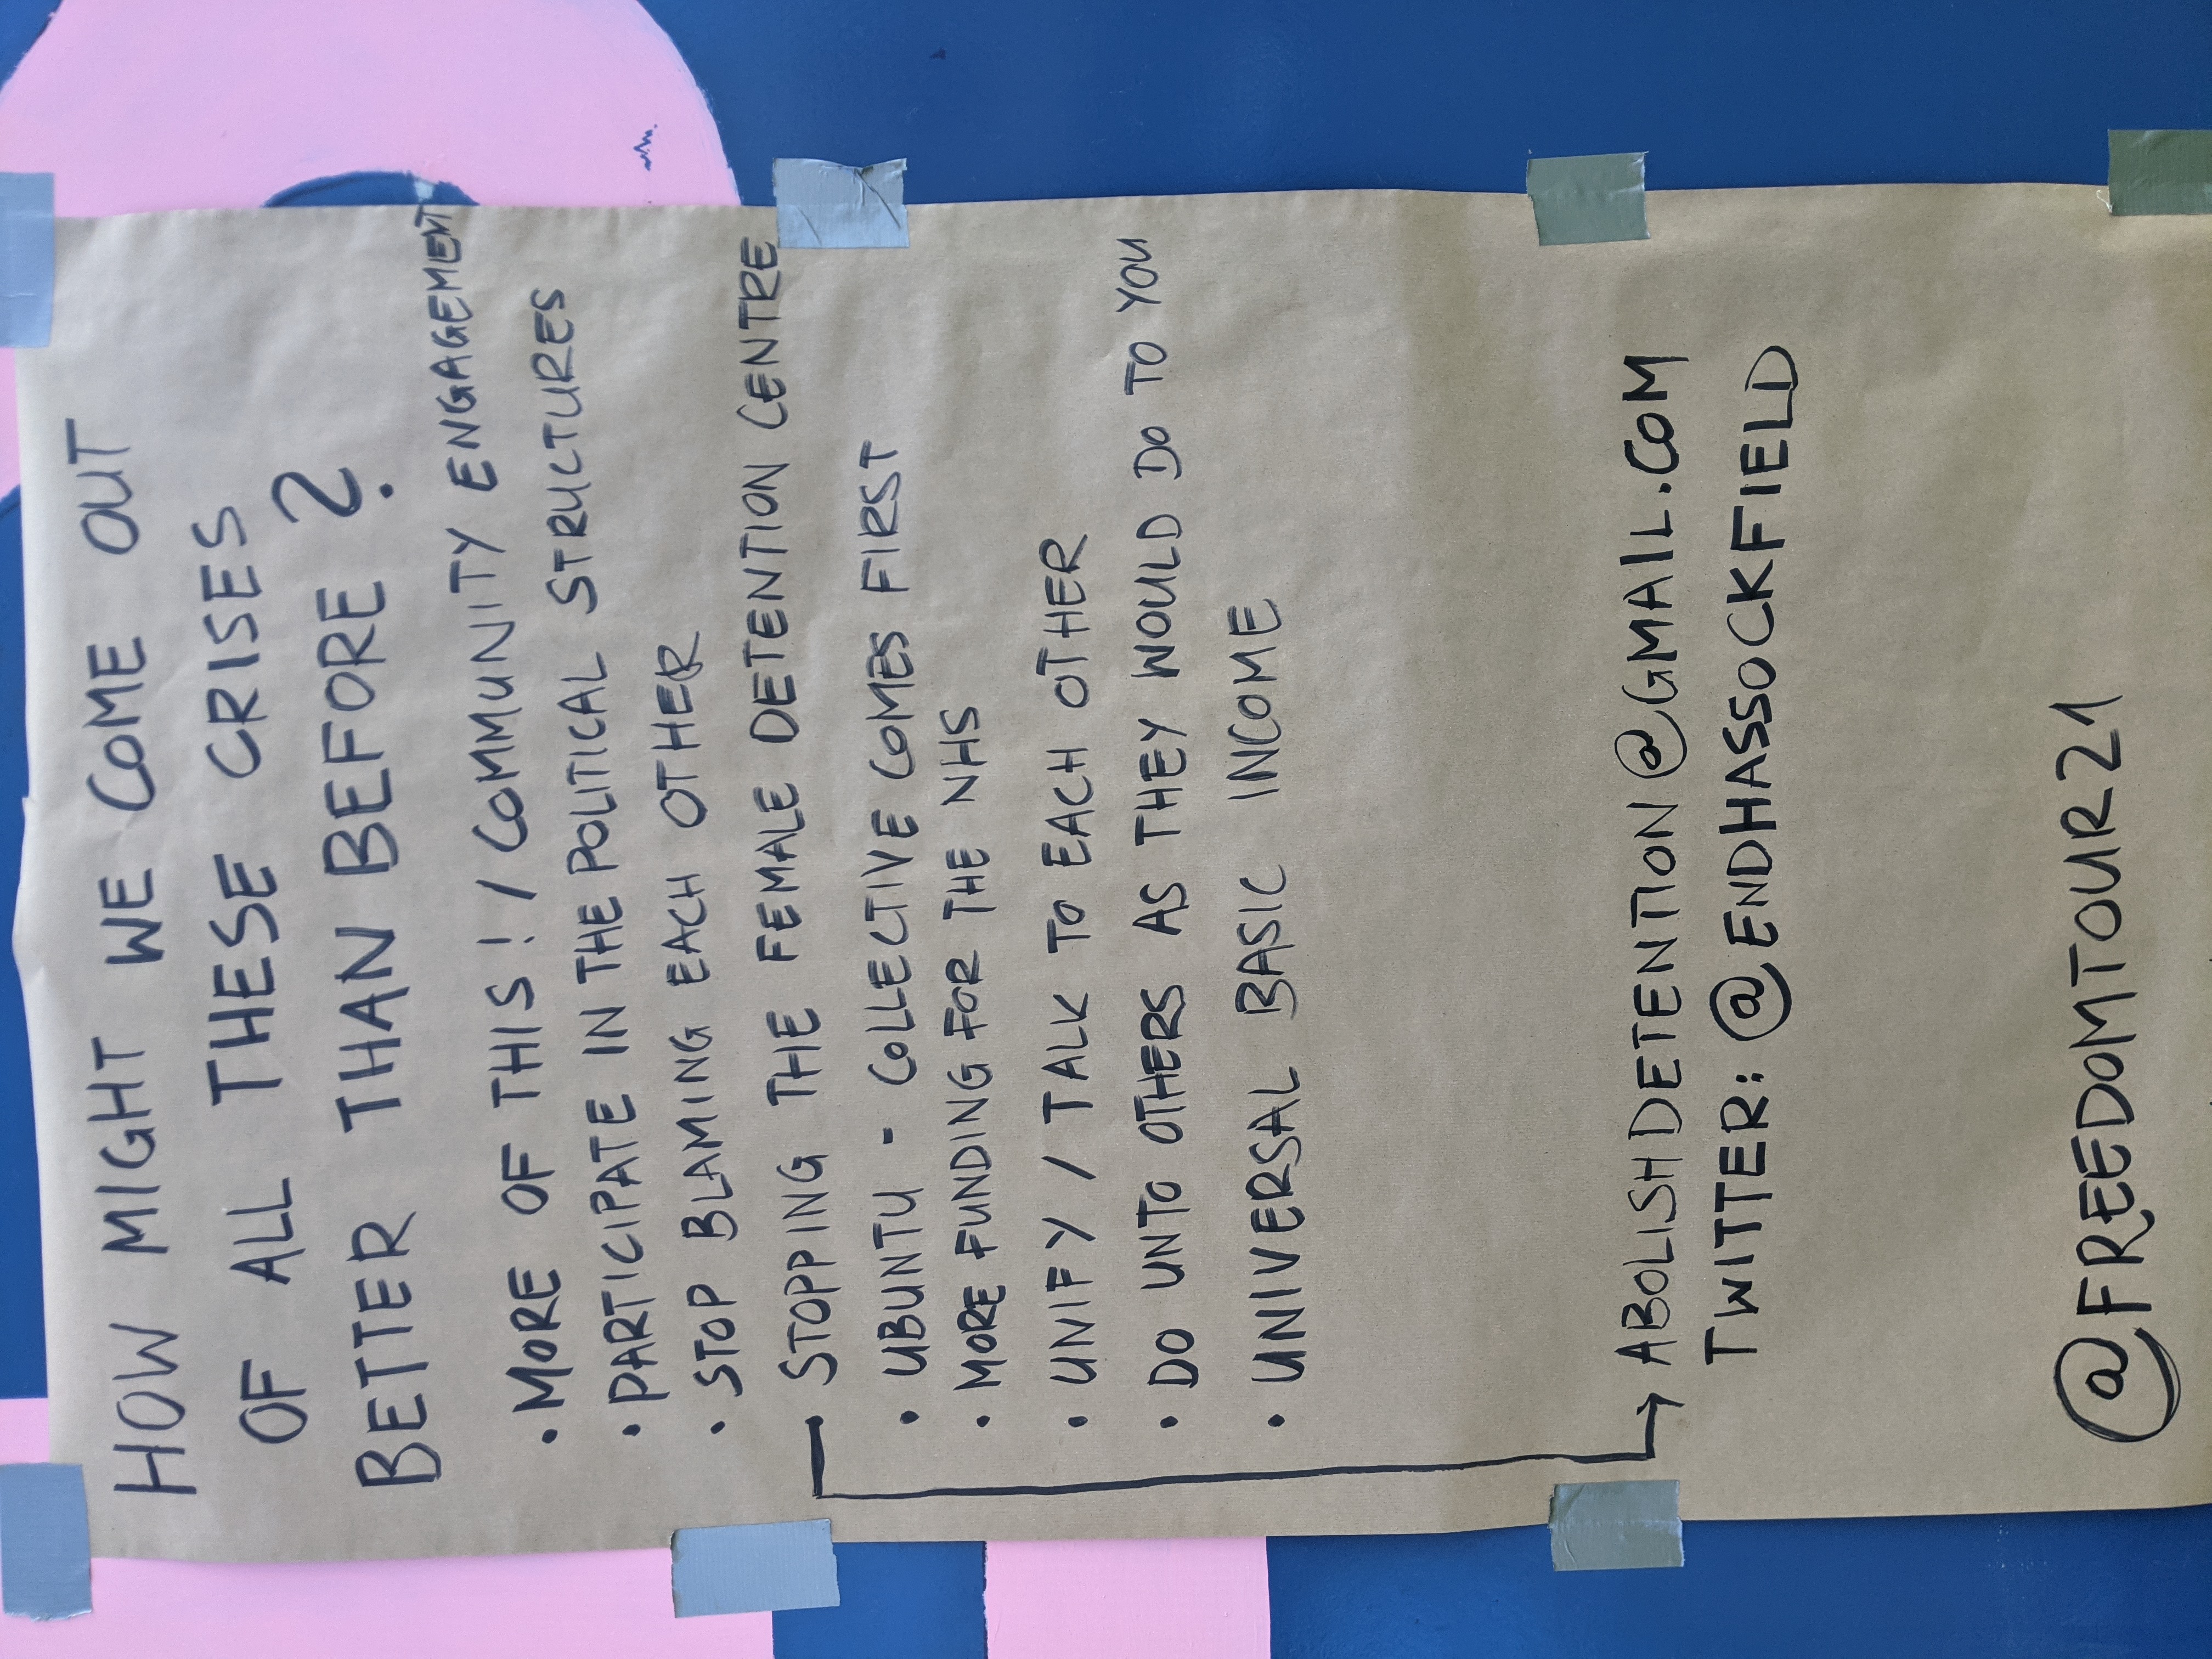 HOW MIGHT WE COME OUT
OF ALL THESE CRISES
BETTER THAN BEFORE ?
• MORE OF THIS! / COMMUNITY ENGAGEMENT
• PARTICIPATE IN THE POLITICAL STRUCTURES
• STOP BLAMING EACH OTHER
• STOPPING THE FEMALE DETENTION CENTRE
• UBUNTU - COLLECTIVE COMES FIRST
• MORE FUNDING FOR THE NHS
• UNIFY / TALK TO EACH OTHER
• DO UNTO OTHERS AS THEY WOULD DO TO YOU
• UNIVERSAL BASIC INCOME
→ ABOLISHDETENTION@GMAIL.COM
TWITTER: @ENDHASSOCKFIELD
@FREEDOMTOUR21